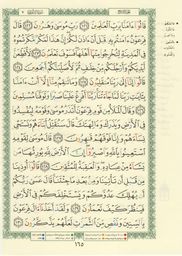 قَالُوٓا۟ ءَامَنَّا بِرَبِّ ٱلْعَـٰلَمِينَ ١٢١ رَبِّ مُوسَىٰ وَهَـٰرُونَ ١٢٢ قَالَ
فِرْعَوْنُ ءَامَنتُم بِهِۦ قَبْلَ أَنْ ءَاذَنَ لَكُمْ إِنَّ هَـٰذَا لَمَكْرٌ مَّكَرْتُمُوهُ
فِى ٱلْمَدِينَةِ لِتُخْرِجُوا۟ مِنْهَآ أَهْلَهَا فَسَوْفَ تَعْلَمُونَ ١٢٣ لَأُقَطِّعَنَّ
أَيْدِيَكُمْ وَأَرْجُلَكُم مِّنْ خِلَـٰفٍ ثُمَّ لَأُصَلِّبَنَّكُمْ أَجْمَعِينَ ١٢٤
قَالُوٓا۟ إِنَّآ إِلَىٰ رَبِّنَا مُنقَلِبُونَ ١٢٥ وَمَا تَنقِمُ مِنَّآ إِلَّآ أَنْ ءَامَنَّا
بِـَٔايَـٰتِ رَبِّنَا لَمَّا جَآءَتْنَا رَبَّنَآ أَفْرِغْ عَلَيْنَا صَبْرًا وَتَوَفَّنَا مُسْلِمِينَ ١٢٦
وَقَالَ ٱلْمَلَأُ مِن قَوْمِ فِرْعَوْنَ أَتَذَرُ مُوسَىٰ وَقَوْمَهُۥ لِيُفْسِدُوا۟
فِى ٱلْأَرْضِ وَيَذَرَكَ وَءَالِهَتَكَ قَالَ سَنُقَتِّلُ أَبْنَآءَهُمْ وَنَسْتَحْىِۦ
نِسَآءَهُمْ وَإِنَّا فَوْقَهُمْ قَـٰهِرُونَ ١٢٧ قَالَ مُوسَىٰ لِقَوْمِهِ
ٱسْتَعِينُوا۟ بِٱللَّهِ وَٱصْبِرُوٓا۟ إِنَّ ٱلْأَرْضَ لِلَّهِ يُورِثُهَا مَن
يَشَآءُ مِنْ عِبَادِهِۦ وَٱلْعَـٰقِبَةُ لِلْمُتَّقِينَ ١٢٨ قَالُوٓا۟ أُوذِينَا
مِن قَبْلِ أَن تَأْتِيَنَا وَمِنۢ بَعْدِ مَا جِئْتَنَا قَالَ عَسَىٰ رَبُّكُمْ
أَن يُهْلِكَ عَدُوَّكُمْ وَيَسْتَخْلِفَكُمْ فِى ٱلْأَرْضِ
فَيَنظُرَ كَيْفَ تَعْمَلُونَ ١٢٩ وَلَقَدْ أَخَذْنَآ ءَالَ فِرْعَوْنَ
بِٱلسِّنِينَ وَنَقْصٍ مِّنَ ٱلثَّمَرَٰتِ لَعَلَّهُمْ يَذَّكَّرُونَ ١٣٠
١٦٥